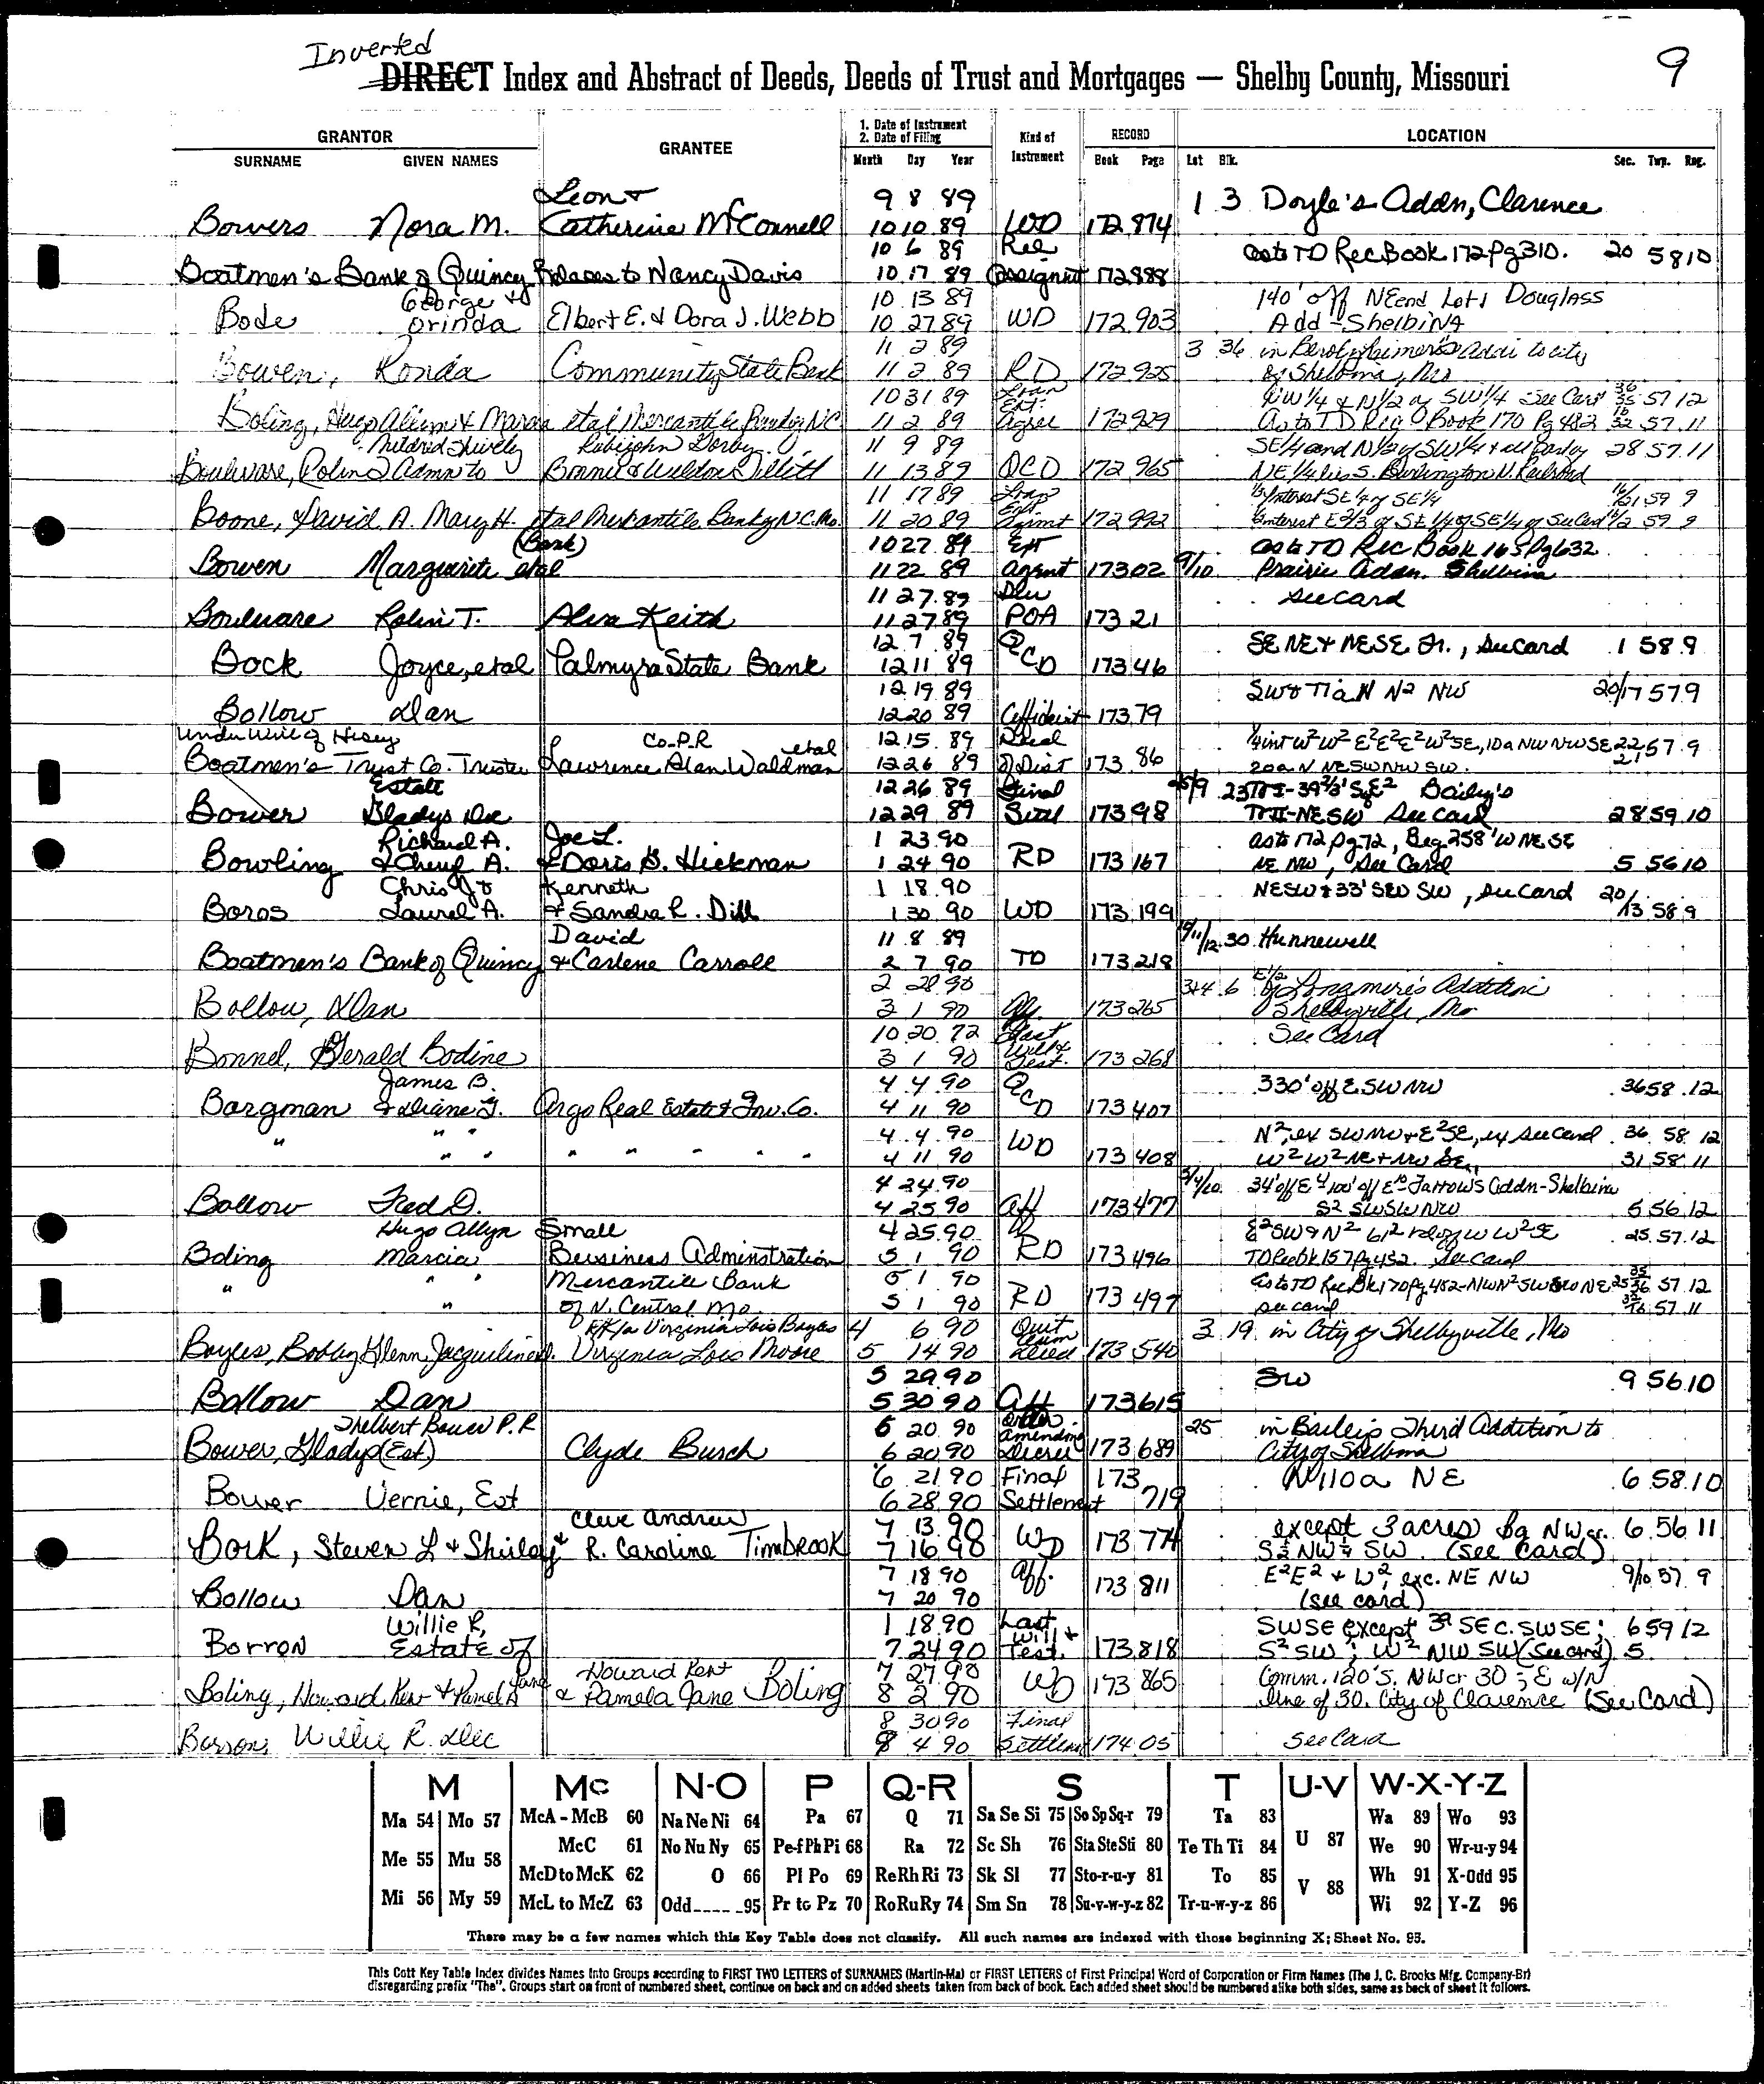 Inverted
DIRECT Index and Abstract of Deeds, Deeds of Trust and Mortgages — Shelby County, Missouri
9
GRANTOR GRANTEE 1. Date of Instrument 2. Date of Filing Kind of Instrument RECORD LOCATION
SURNAME GIVEN NAMES Month Day Year Book Page Lot Blk. Sec. Twp. Rng.
Leon & 9 8 89 1 3 Doyle's Addn, Clarence
Bowers Nora M. Catherine McConnell 10 10 89 WD 172 874
10 6 89 Rel as to TD Rec Book 172 Pg 310. 20 58 10
Boatmen's Bank of Quincy to Nancy Davis 10 17 89 172 888
George & 10 13 89 140' off NE end Lot 1 Douglass
Bode Orinda Elbert E. & Dora J. Webb 10 27 89 WD 172 903 Add - Shelbina
11 2 89 3 36 in Addi to city
Bowen, Ronda Community State Bank 11 2 89 RD 172 925 of Shelbina, Mo
10 31 89 Loan Ext. NW 1/4 & N 1/2 of SW 1/4 See Card 57 12
Boling, Hugo Allyn & Marcia etal Mercantile Bank of NC 11 2 89 Agree 172 929 As to TD Rec Book 170 Pg 482 57 11
Mildred Shively 11 9 89 SE 1/4 and N 1/2 of SW 1/4 & all part of 28 57 11
Boulware, Rolin T Admn to Bonnie & Weldon 11 13 89 QCD 172 965 NE 1/4 lies S. Burlington N. Railroad
11 17 89 Loan Ext Interest SE 1/4 of SE 1/4 59 9
Boone, David A. Mary H. etal Mercantile Bank of N.C. Mo. 11 20 89 Agrmt 172 992 interest E 2/3 of SE 1/4 of SE 1/4 of See Card 59 9
(Bank) 10 27 89 Ext as to TD Rec Book 165 Pg 632
Bowen Marguerite etal 11 22 89 Agmt 173 02 9/10 Prairie Addn. Shelbina
11 27 89 See Card
Boulware Rolin T. Alva Keith 11 27 89 POA 173 21
12 7 89 SE NE & NE SE Fr., See Card 1 58 9
Bock Joyce, etal Palmyra State Bank 12 11 89 QCD 173 46
12 19 89 N N2 NW 20/17 57 9
Bollow Dan 12 20 89 Affidavit 173 79
Under Will of Hisey Co-P.R etal 12 15 89 Deed 1/4 int W2 W2 E2 E2 E2 W2 SE, 10a NW NW SE 22 57 9
Boatmen's Trust Co. Trustee Lawrence Alan Waldman 12 26 89 of Dist 173 86 20a N NE SW NW SW. 21
Estate 12 26 89 Final Baily's
Bower Gladys Dec 12 29 89 Settl 173 98 TR II - NE SW See Card 28 59 10
Richard A. Joe L. 1 23 90 as to 172 pg 72, Beg 258' W NE SE
Bowling & Cheryl A. & Doris G. Hickman 1 24 90 RD 173 167 NE NW, See Card 5 56 10
Chris J & Kenneth 1 18 90 NESW & 33' SW, See Card 20/
Boros Laurel A. & Sandra R. Dill 1 30 90 WD 173 199 13 58 9
David 11 8 89 10/11/12 30 Hunnewell
Boatmen's Bank of Quincy & Carlene Carroll 2 7 90 TD 173 218
2 28 90 3&4 6 E 1/2 of Longmire's Addition
Bollow, Dan 3 1 90 173 265 Shelbyville, Mo
10 20 72 Last Will & See Card
Bonnel, Gerald Bodine 3 1 90 Test. 173 268
James B. 4 4 90 330' off E SW NW 36 58 12
Borgman & Diane G. Argo Real Estate & Inv. Co. 4 11 90 QCD 173 407
" " " 4 4 90 WD N2, ex SW NW & E2 SE, ex See Card 36 58 12
" " " " " " 4 11 90 173 408 W2 W2 NE & NW SE 31 58 11
4 24 90 34' off E 100' off Farrows Addn - Shelbina
Bollow Fred D. 4 25 90 Aff 173 477 S2 SW SW NW 5 56 12
Hugo Allyn Small 4 25 90 25 57 12
Boling Marcia Business Adminstration 5 1 90 RD 173 496 TD Rec Bk 157 Pg 452. See Card
" " " Mercantile Bank 5 1 90 as to TD Rec Bk 170 Pg 482 - NW N2 SW NE 57 12
" of N. Central Mo. 5 1 90 RD 173 497 See Card 57 11
F/K/a Virginia Lois Bayles 4 6 90 Quit Claim 3 19 in City of Shelbyville, Mo
Boyles, Bobby Glenn, Jacqueline Virginia Lois Moore 5 14 90 Deed 173 540
5 29 90 SW 9 56 10
Bollow Dan 5 30 90 Aff 173 615
Thelbert Bower P.R 6 20 90 Order Amending 25 in Bailey's Third Addition to
Bower, Gladys (Est) Clyde Busch 6 20 90 Decree 173 689 City of Shelbina
6 21 90 Final 173 N 110a NE 6 58 10
Bower Vernie, Est 6 28 90 Settlement 719
Cleve Andrew 7 13 90 except 3 acres bg NW cr. 6 56 11
Bork, Steven L & Shirley & R. Caroline Timbrook 7 16 98 WD 173 774 S½ NW¼ SW. (see card)
7 18 90 Aff. E2 E2 & W2, exc. NE NW 9/10 57 9
Bollow Dan 7 20 90 173 811 (see card)
Willie R, 1 18 90 Last Will & SWSE except 3a SE C. SWSE; 6 59 12
Borron Estate of 7 24 90 Test. 173 818 S2 SW; W2 NW SW (See card) 5
Jane Howard Kent 7 27 90 Comm. 120's. NW cr 30; E w/N
Boling, Howard Kent & Pamela & Pamela Jane Boling 8 2 90 WD 173 865 line of 30. City of Clarence (See Card)
8 30 90 Final
Borron, Willie R. Dec 8 4 90 Settlem 174 05 See Card
M Mc N-O P Q-R S T U-V W-X-Y-Z
Ma 54 Mo 57 McA - McB 60 Na Ne Ni 64 Pa 67 Q 71 Sa Se Si 75 So Sp Sq-r 79 Ta 83 U 87 Wa 89 Wo 93
Me 55 Mu 58 McC 61 No Nu Ny 65 Pe-f Ph Pi 68 Ra 72 Sc Sh 76 Sta Ste Sti 80 Te Th Ti 84 We 90 Wr-u-y 94
McD to McK 62 O 66 Pl Po 69 Re Rh Ri 73 Sk Sl 77 Sto-r-u-y 81 To 85 V 88 Wh 91 X-Odd 95
Mi 56 My 59 McL to McZ 63 Odd 95 Pr to Pz 70 Ro Ru Ry 74 Sm Sn 78 Su-v-w-y-z 82 Tr-u-w-y-z 86 Wi 92 Y-Z 96
There may be a few names which this Key Table does not classify. All such names are indexed with those beginning X; Sheet No. 95.
This Cott Key Table Index divides Names into Groups according to FIRST TWO LETTERS of SURNAMES (Martin-Ma) or FIRST LETTERS of First Principal Word of Corporation or Firm Names (The J. C. Brooks Mfg. Company-Br)
disregarding prefix "The". Groups start on front of numbered sheet, continue on back and on added sheets taken from back of book. Each added sheet should be numbered alike both sides, same as back of sheet it follows.